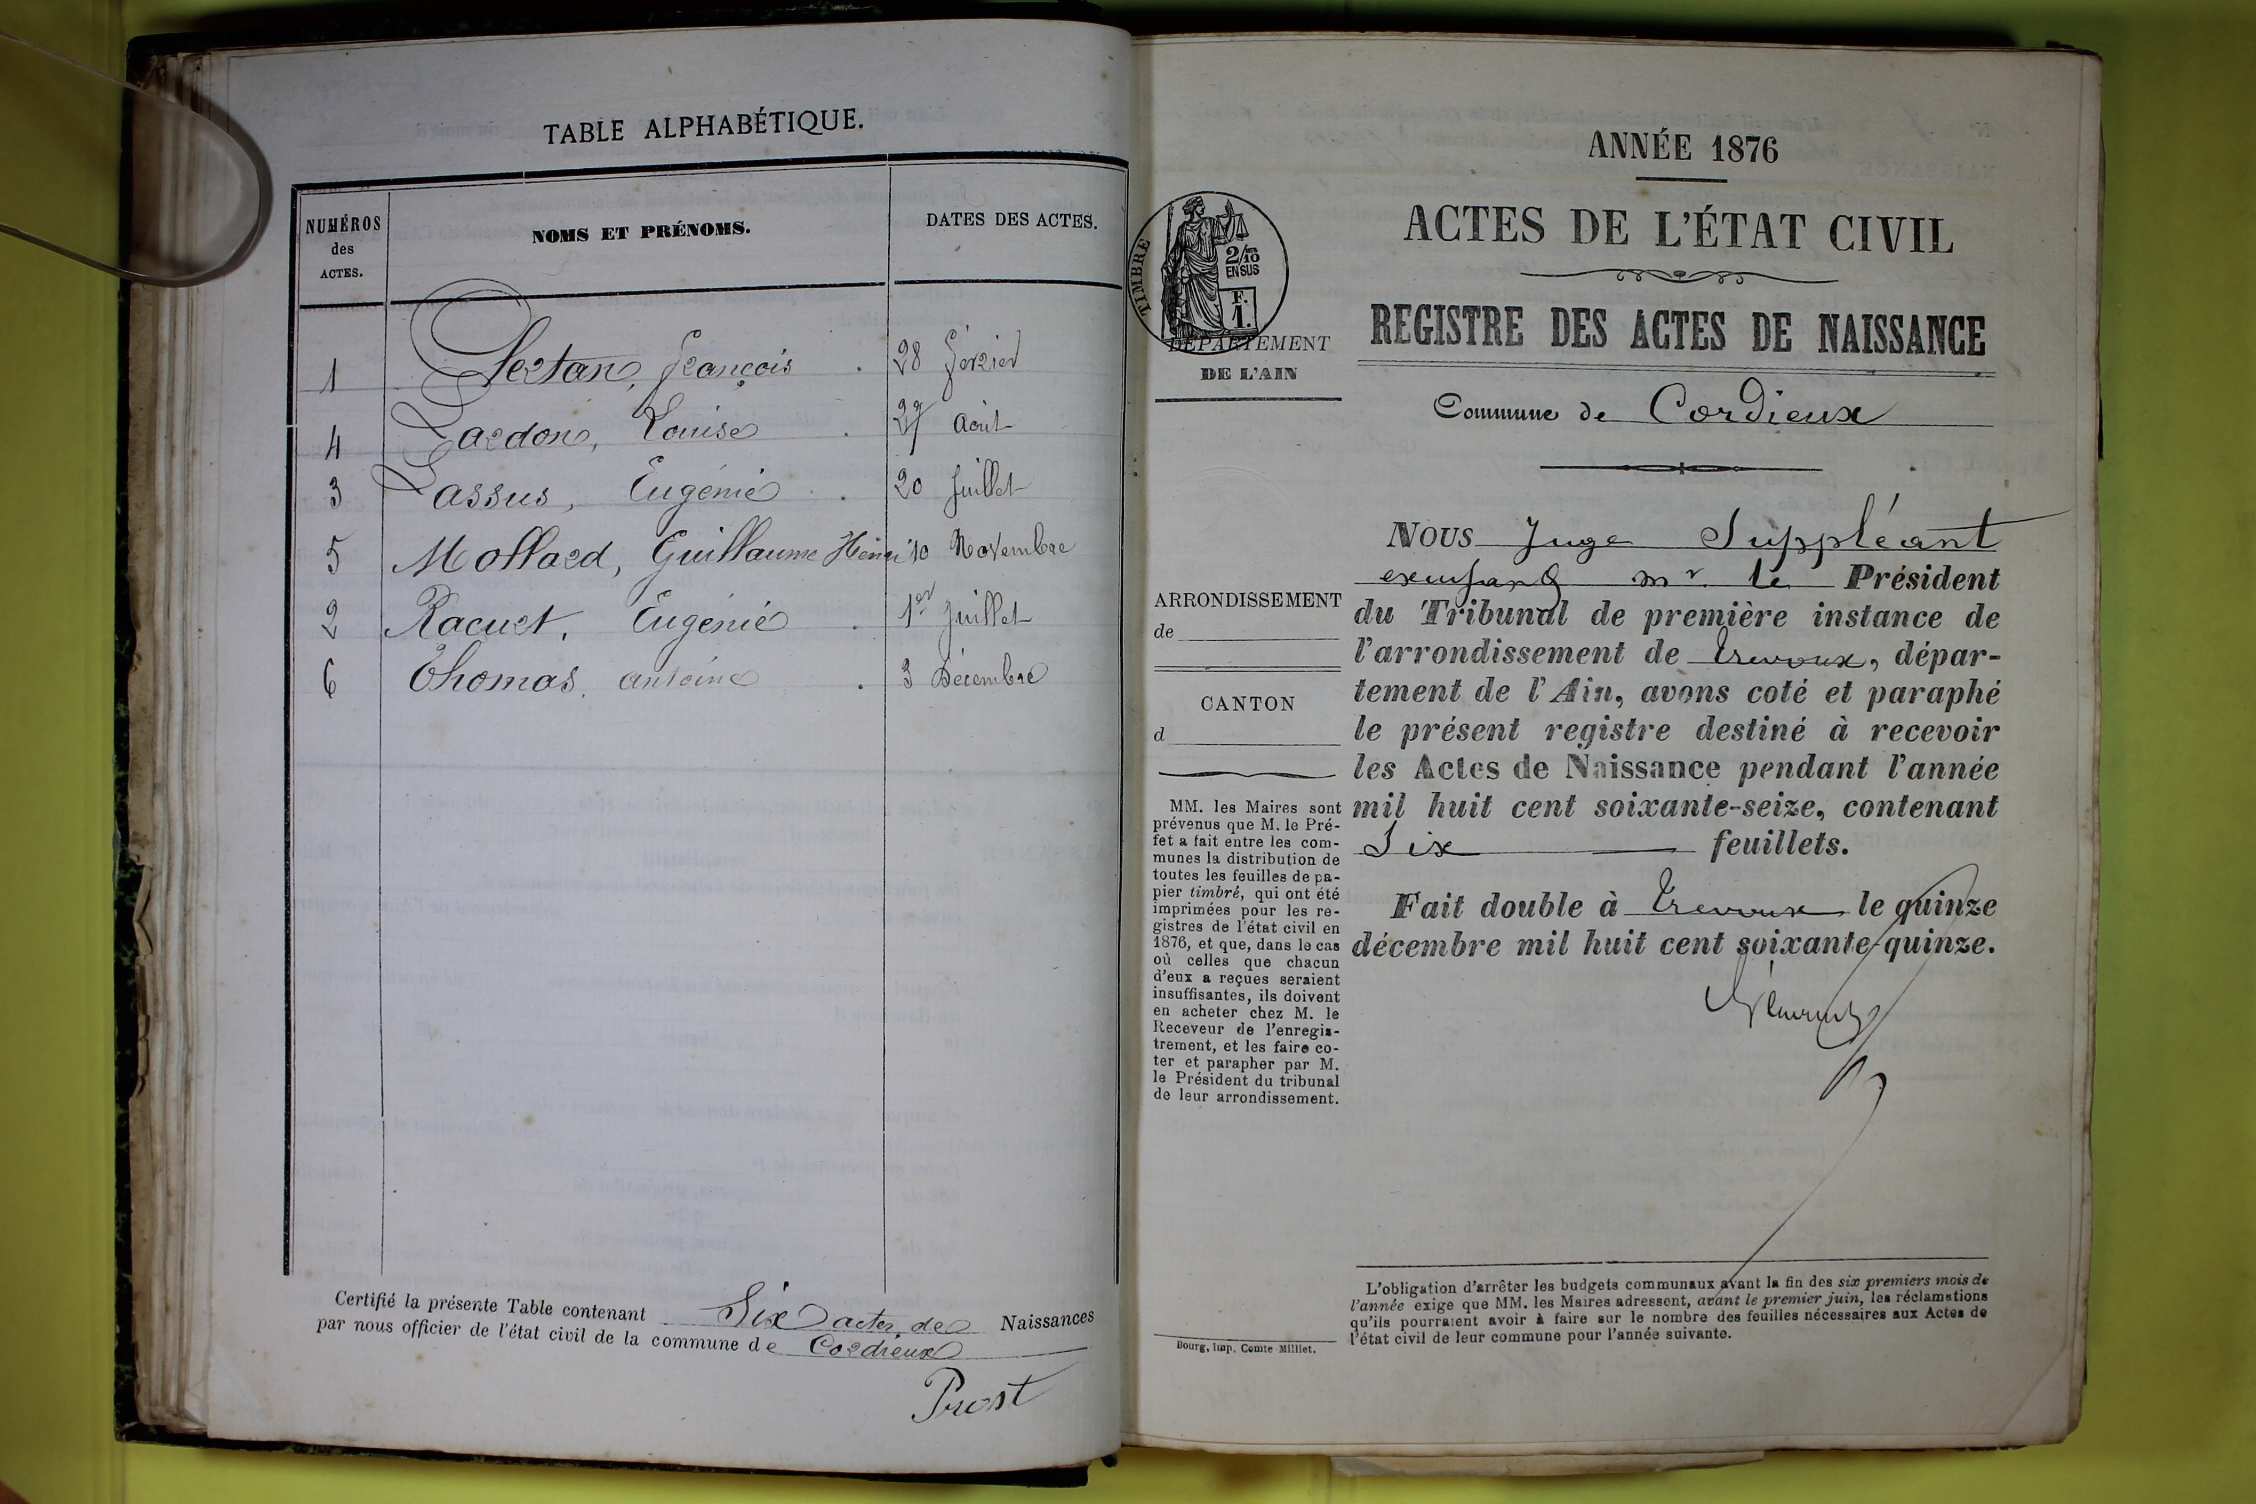 TABLE ALPHABÉTIQUE.
NUMÉROS des ACTES.
NOMS ET PRÉNOMS.
DATES DES ACTES.
1 François 28 février
4 Lardon, Louise 27 Août
3 Lassus, Eugénie 20 Juillet
5 Mollard, Guillaume Henri 10 Novembre
2 Racurt, Eugénie 1er Juillet
6 Thomas, antoine 3 Décembre
Certifié la présente Table contenant Six actes de Naissances
par nous officier de l'état civil de la commune de Cordieux
Prost
ANNÉE 1876
ACTES DE L'ÉTAT CIVIL
REGISTRE DES ACTES DE NAISSANCE
Commune de Cordieux
TIMBRE
2/10 EN SUS
F. 1.
DÉPARTEMENT
DE L'AIN
ARRONDISSEMENT
de
CANTON
d
MM. les Maires sont
prévenus que M. le Pré-
fet a fait entre les com-
munes la distribution de
toutes les feuilles de pa-
pier timbré, qui ont été
imprimées pour les re-
gistres de l'état civil en
1876, et que, dans le cas
où celles que chacun
d'eux a reçues seraient
insuffisantes, ils doivent
en acheter chez M. le
Receveur de l'enregis-
trement, et les faire co-
ter et parapher par M.
le Président du tribunal
de leur arrondissement.
Bourg, Imp. Comte Milliet.
NOUS Juge Suppléant
mr le Président
du Tribunal de première instance de
l'arrondissement de Trevoux, dépar-
tement de l'Ain, avons coté et paraphé
le présent registre destiné à recevoir
les Actes de Naissance pendant l'année
mil huit cent soixante-seize, contenant
Six feuillets.
Fait double à Trevoux le quinze
décembre mil huit cent soixante-quinze.
L'obligation d'arrêter les budgets communaux avant la fin des six premiers mois de
l'année exige que MM. les Maires adressent, avant le premier juin, les réclamations
qu'ils pourraient avoir à faire sur le nombre des feuilles nécessaires aux Actes de
l'état civil de leur commune pour l'année suivante.